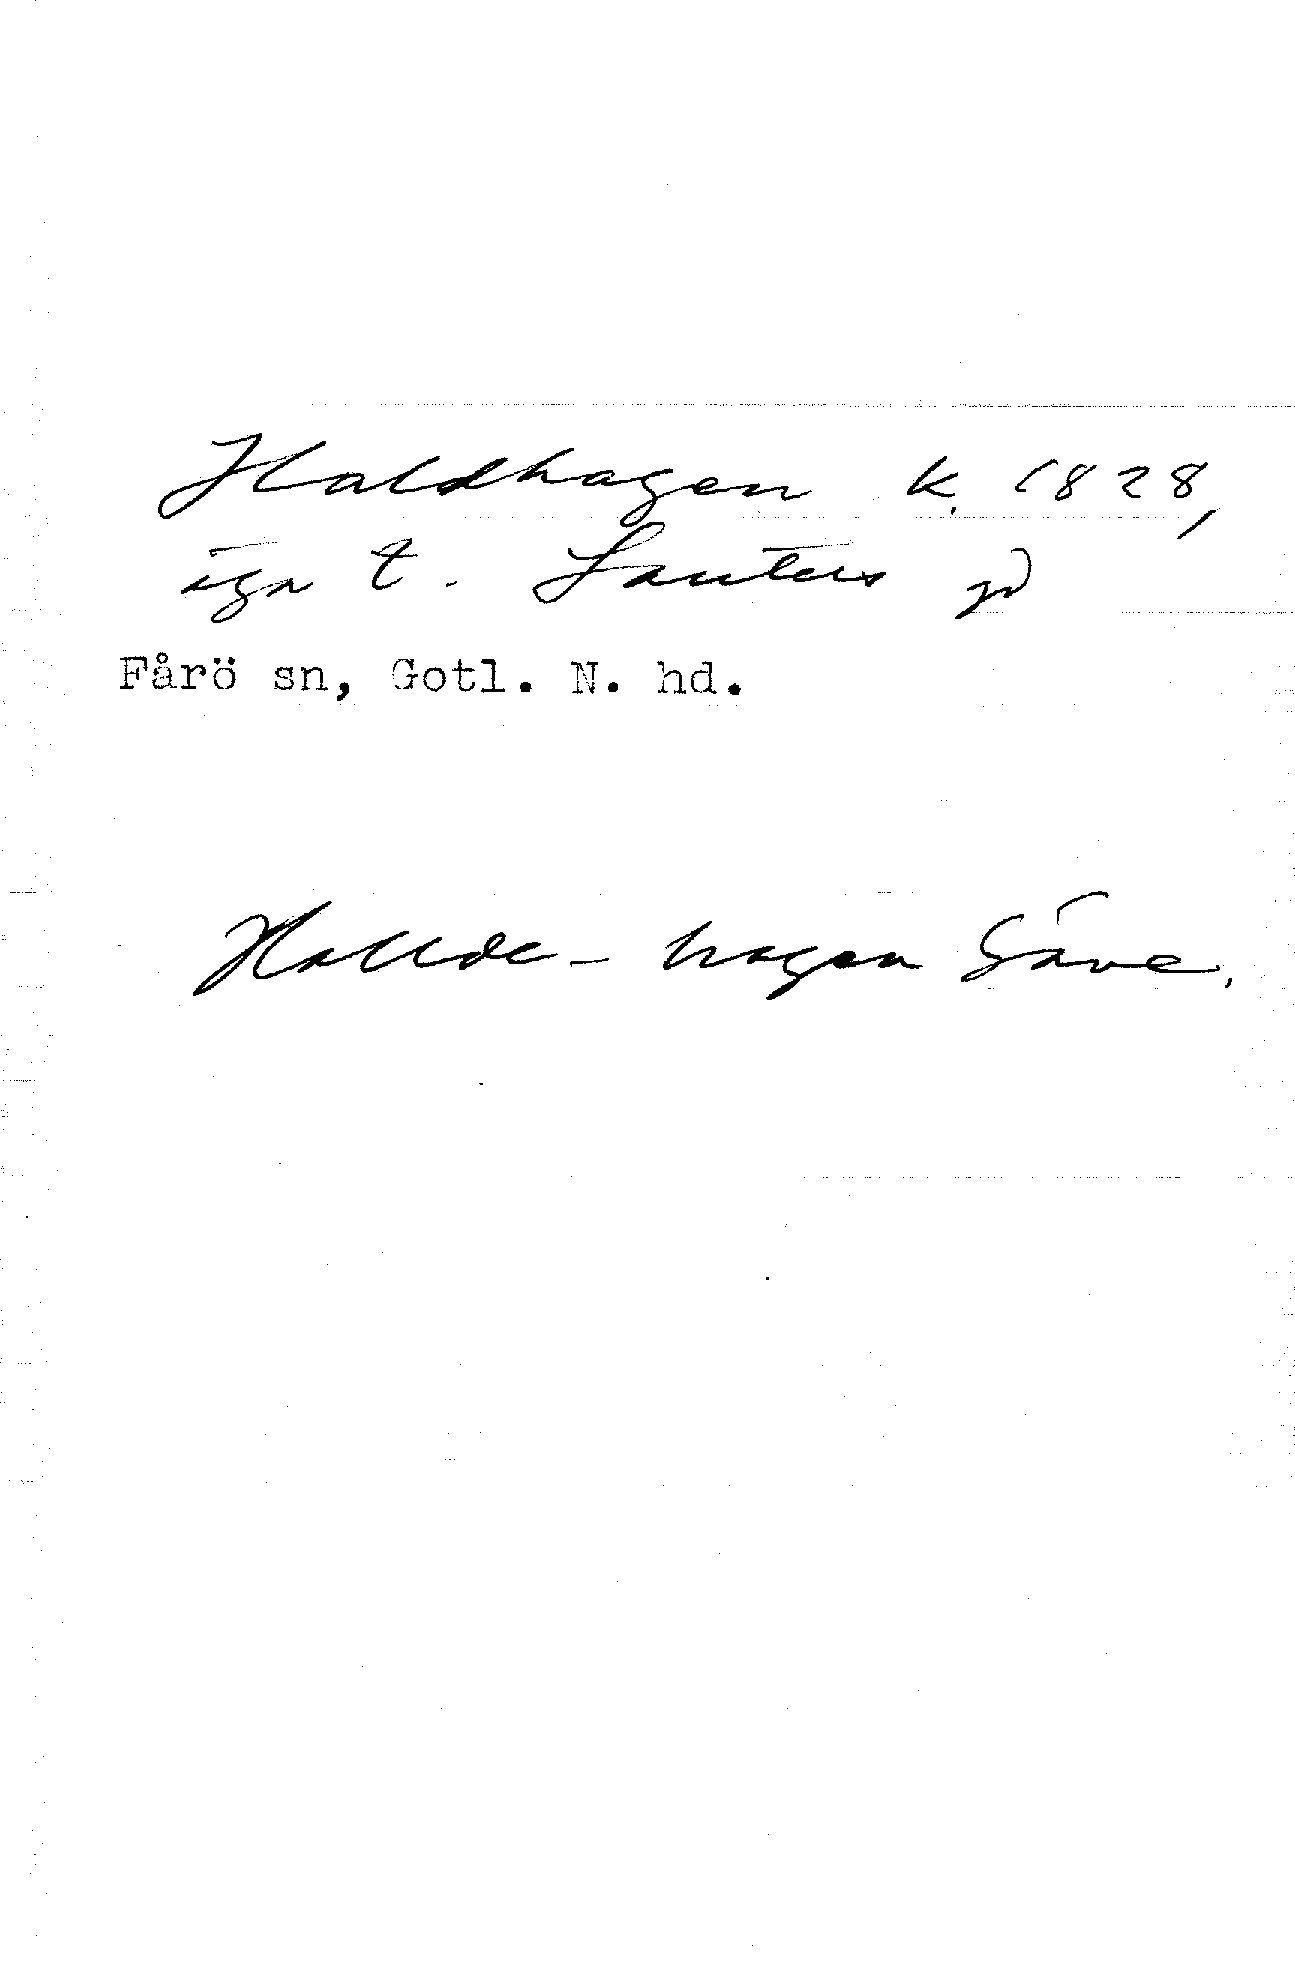 Haldhagen k. 1828,
äga t. Lauters gd
Fårö sn, Gotl. N. hd.
Hallde-hagen Säve.